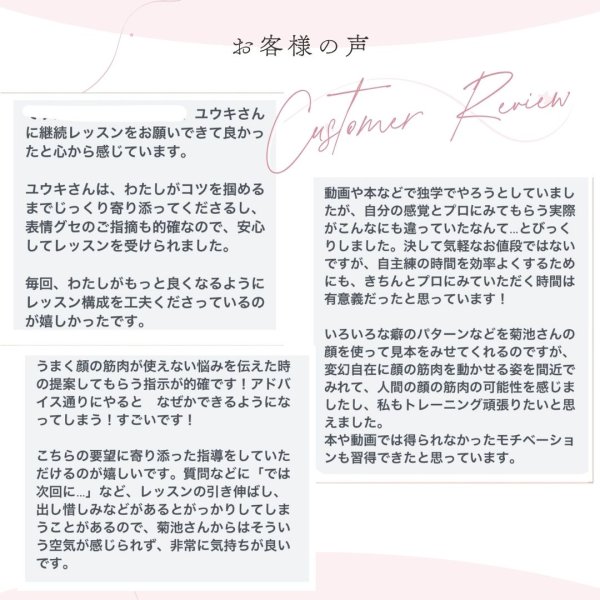 お客様の声
Customer Review
ユウキさん
に継続レッスンをお願いできて良かっ
たと心から感じています。
ユウキさんは、わたしがコツを掴める
までじっくり寄り添ってくださるし、
表情グセのご指摘も的確なので、安心
してレッスンを受けられました。
毎回、わたしがもっと良くなるように
レッスン構成を工夫くださっているの
が嬉しかったです。
動画や本などで独学でやろうとしていまし
たが、自分の感覚とプロにみてもらう実際
がこんなにも違っていたなんて...とびっく
りしました。決して気軽なお値段ではない
ですが、自主練の時間を効率よくするため
にも、きちんとプロにみていただく時間は
有意義だったと思っています！
いろいろな癖のパターンなどを菊池さんの
顔を使って見本をみせてくれるのですが、
変幻自在に顔の筋肉を動かせる姿を間近で
みれて、人間の顔の筋肉の可能性を感じま
したし、私もトレーニング頑張りたいと思
えました。
本や動画では得られなかったモチベーション
も習得できたと思っています。
うまく顔の筋肉が使えない悩みを伝えた時
の提案してもらう指示が的確です！アドバ
イス通りにやると　なぜかできるようにな
ってしまう！すごいです！
こちらの要望に寄り添った指導をしていた
だけるのが嬉しいです。質問などに「では
次回に...」など、レッスンの引き伸ばし、
出し惜しみなどがあるとがっかりしてしま
うことがあるので、菊池さんからはそうい
う空気が感じられず、非常に気持ちが良い
です。